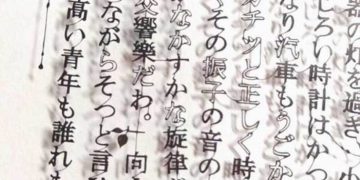 の灯を過ぎ、小
しろい時計はかつ
なり汽車もうごか
カチツと正しく時
その振子の音の
なかすかな旋律
交響樂だわ。向
ながらそつと言
高い青年も誰れも